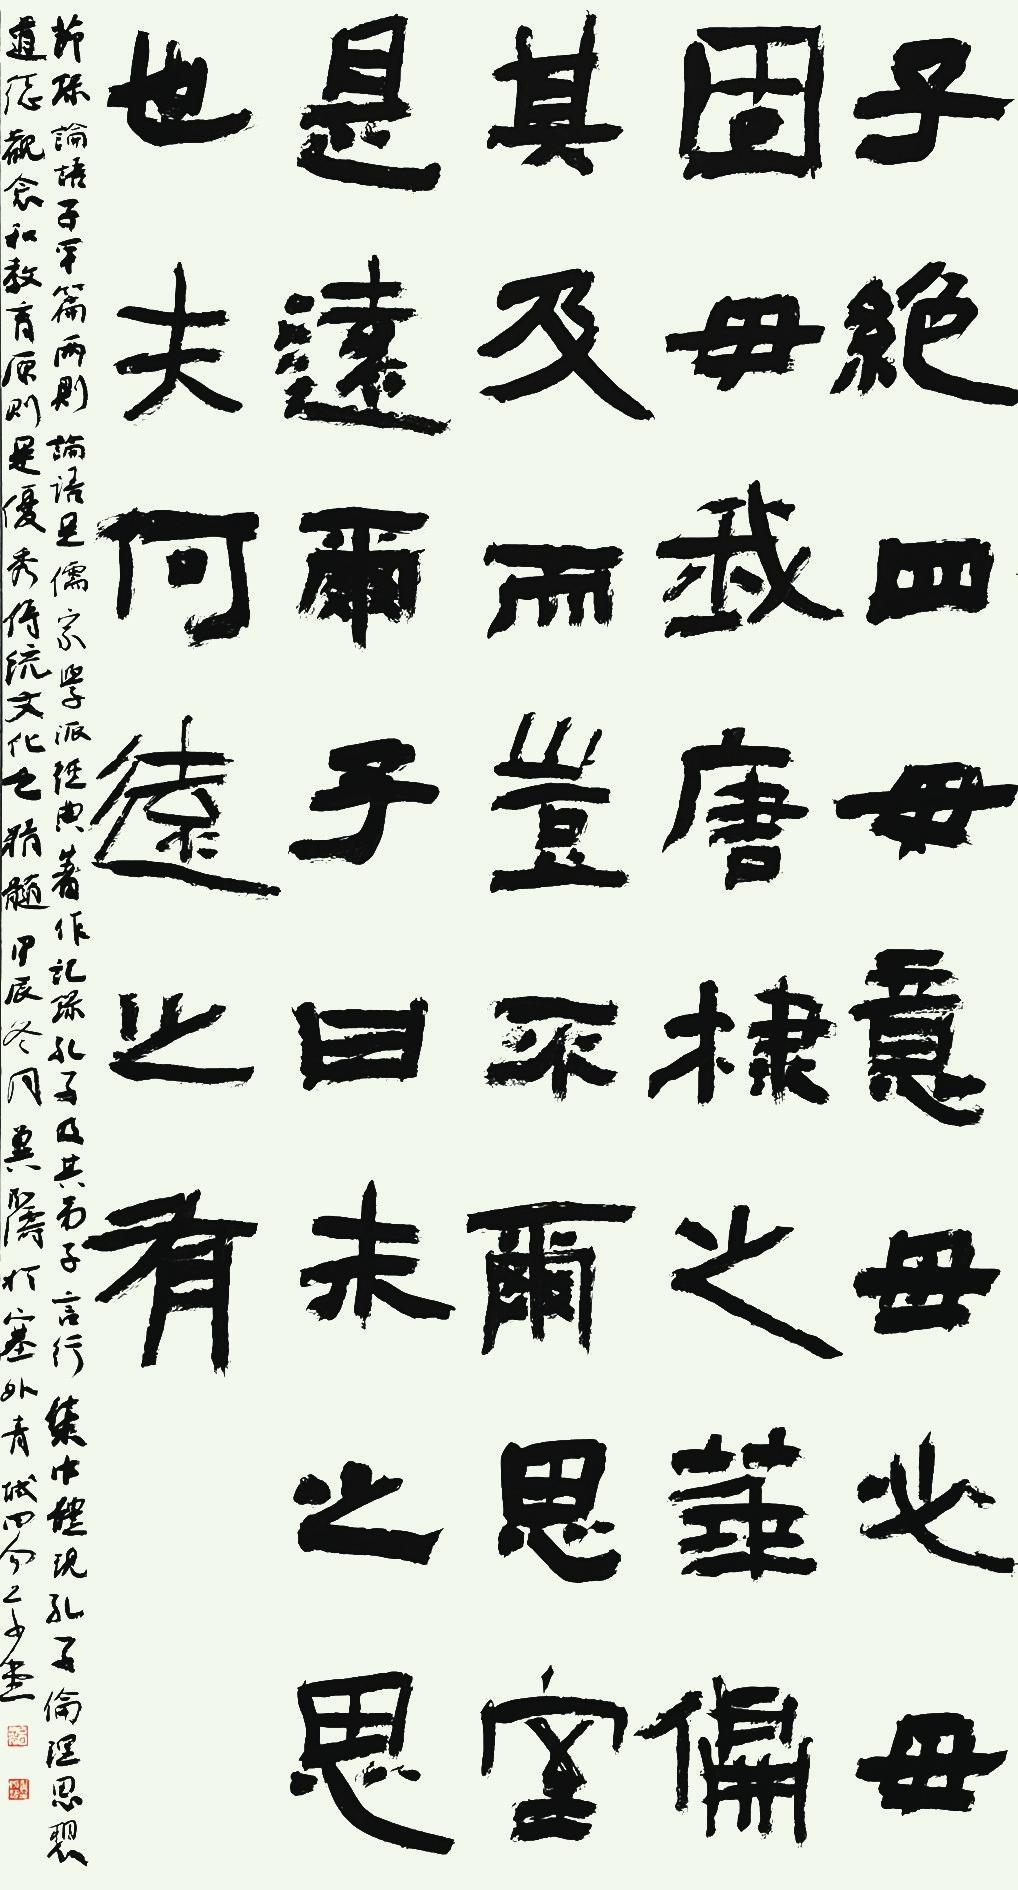 子絕四毋意毋必毋
固毋我唐棣之華偏
其及而豈不爾思室
是遠爾子曰未之思
也夫何遠之有
節録論語子罕篇兩則論語是儒家學派經典著作記録孔子及其弟子言行集中體現孔子倫理思想
道德觀念和教育原則是優秀傳統文化之精髓甲辰冬月冀濤於塞外青城四勿之